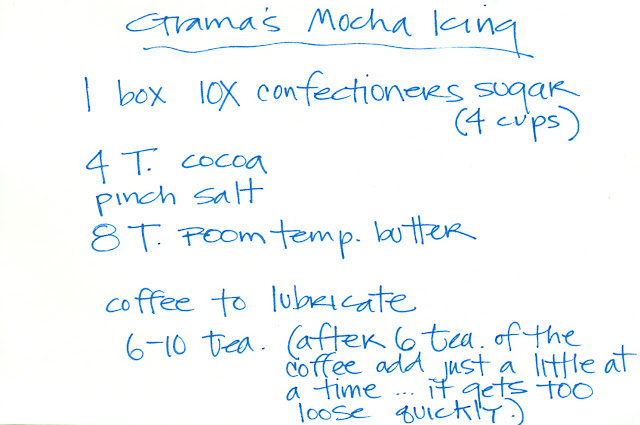 Grama's Mocha Icing
1 box 10X confectioners sugar
(4 cups)
4 T. cocoa
pinch salt
8 T. room temp. butter
coffee to lubricate
6-10 tea. (after 6 tea. of the
coffee add just a little at
a time ... it gets too
loose quickly.)